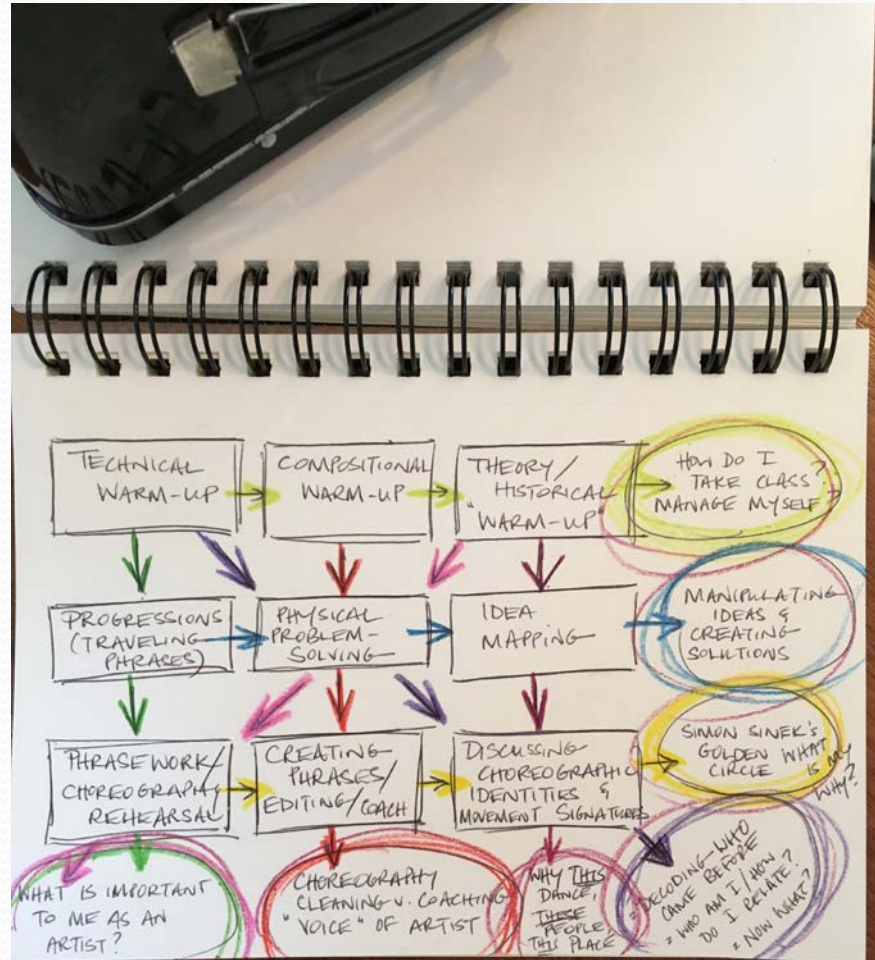 TECHNICAL
WARM-UP
COMPOSITIONAL
WARM-UP
THEORY/
HISTORICAL
"WARM-UP"
HOW DO I
TAKE CLASS?
MANAGE MYSELF?
PROGRESSIONS
(TRAVELING
PHRASES)
PHYSICAL
PROBLEM-
SOLVING
IDEA
MAPPING
MANIPULATING
IDEAS &
CREATING
SOLUTIONS
PHRASEWORK/
CHOREOGRAPHY
REHEARSAL
CREATING
PHRASES/
EDITING/COACH
DISCUSSING
CHOREOGRAPHIC
IDENTITIES &
MOVEMENT SIGNATURES
SIMON SINEK'S
GOLDEN
CIRCLE
WHAT
IS MY
WHY?
WHAT IS IMPORTANT
TO ME AS AN
ARTIST?
CHOREOGRAPHY
CLEANING V. COACHING
"VOICE" OF ARTIST
WHY THIS
DANCE,
THESE
PEOPLE,
THIS PLACE
DECODING-WHO
CAME BEFORE
WHO AM I/HOW
DO I RELATE?
NOW WHAT?